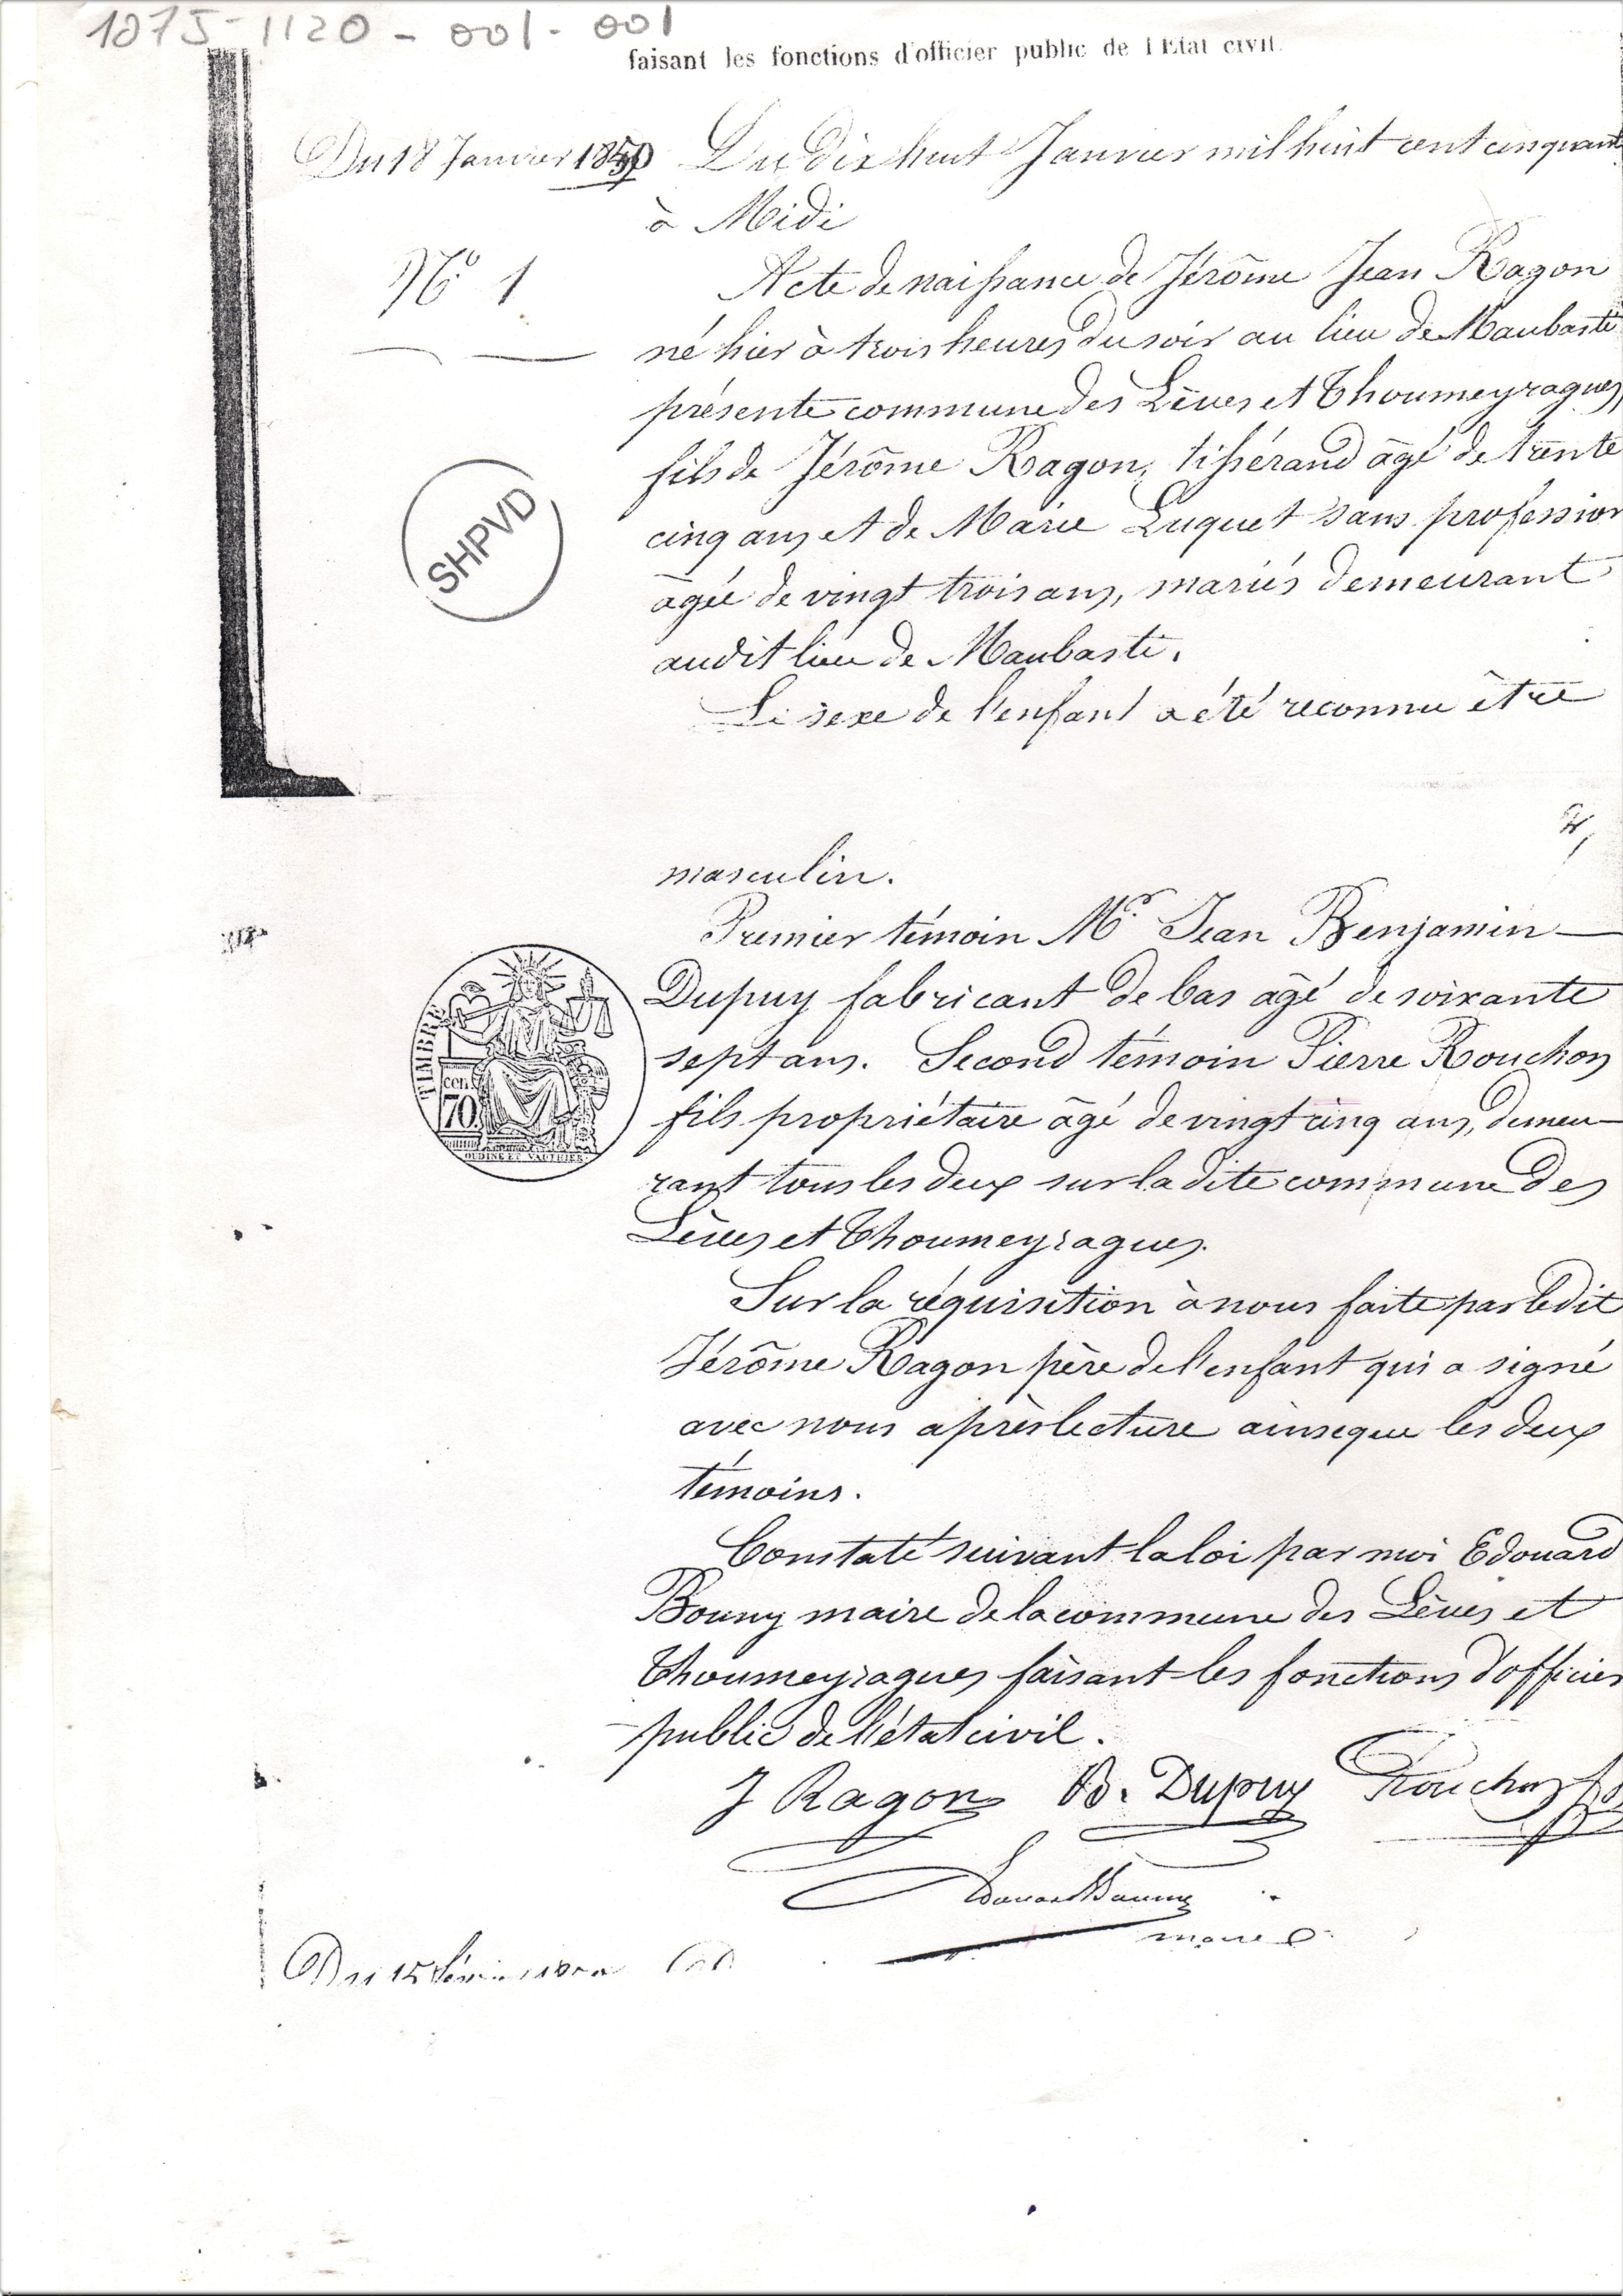 1075-1120-001-001
faisant les fonctions d'officier public de l'Etat civil.
Du 18 Janvier 1850
Du dix huit Janvier mil huit cent cinquante
à Midi
N° 1
Acte de naissance de Jérôme Jean Ragon
né hier à trois heures du soir au lieu de Maubasti
présente commune des Lèves et Thoumeyragues,
fils de Jérôme Ragon, tissérand âgé de trente
cinq ans et de Marie Luquet sans profession
âgée de vingt trois ans, mariés demeurant
audit lieu de Maubasti.
SHPVD
Le sexe de l'enfant a été reconnu être
masculin.
Premier témoin Mr. Jean Benjamin
Dupuy fabricant de bas âgé de soixante
sept ans. Second témoin Pierre Rouchon
fils propriétaire âgé de vingt cinq ans, demeu-
rant tous les deux sur la dite commune des
Lèves et Thoumeyragues.
TIMBRE
cen.
70.
OUDINE ET VAUTHIER
Sur la réquisition à nous faite par ledit
Jérôme Ragon père de l'enfant qui a signé
avec nous après lecture ainseque les deux
témoins.
Constaté suivant la loi par moi Edouard
Bouny maire de la commune des Lèves et
Thoumeyragues faisant les fonctions d'officier
public de l'état civil.
J Ragon B. Dupuy Rouchon fils
Edouard Bouny
maire
Du 15